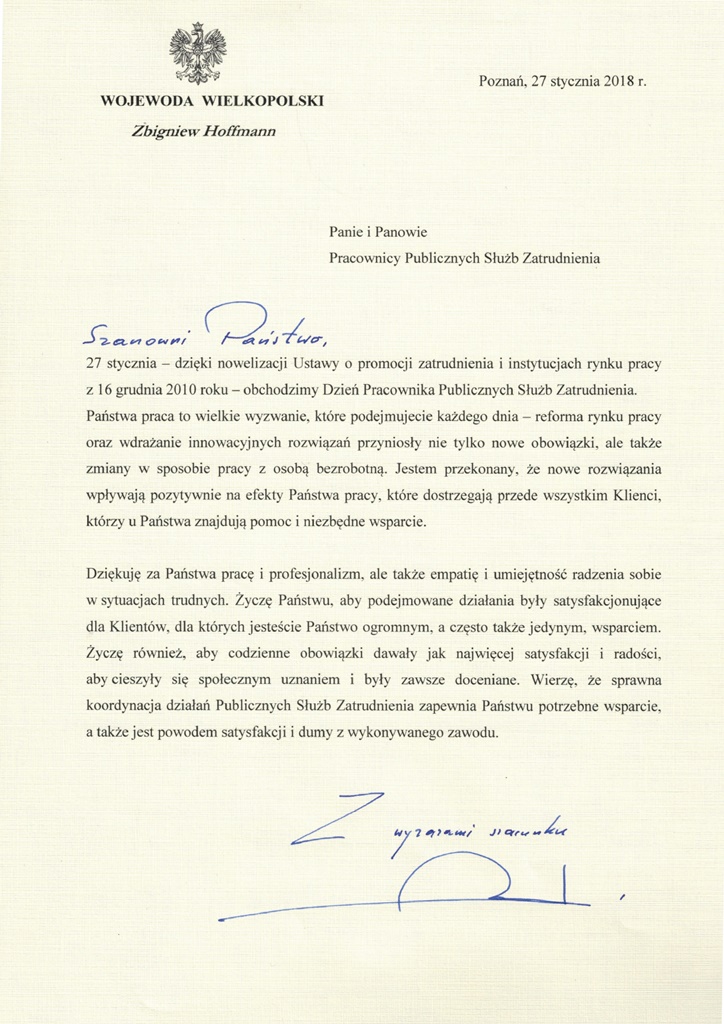 WOJEWODA WIELKOPOLSKI
Zbigniew Hoffmann
Poznań, 27 stycznia 2018 r.
Panie i Panowie
Pracownicy Publicznych Służb Zatrudnienia
Szanowni Państwo,
27 stycznia – dzięki nowelizacji Ustawy o promocji zatrudnienia i instytucjach rynku pracy
z 16 grudnia 2010 roku – obchodzimy Dzień Pracownika Publicznych Służb Zatrudnienia.
Państwa praca to wielkie wyzwanie, które podejmujecie każdego dnia – reforma rynku pracy
oraz wdrażanie innowacyjnych rozwiązań przyniosły nie tylko nowe obowiązki, ale także
zmiany w sposobie pracy z osobą bezrobotną. Jestem przekonany, że nowe rozwiązania
wpływają pozytywnie na efekty Państwa pracy, które dostrzegają przede wszystkim Klienci,
którzy u Państwa znajdują pomoc i niezbędne wsparcie.
Dziękuję za Państwa pracę i profesjonalizm, ale także empatię i umiejętność radzenia sobie
w sytuacjach trudnych. Życzę Państwu, aby podejmowane działania były satysfakcjonujące
dla Klientów, dla których jesteście Państwo ogromnym, a często także jedynym, wsparciem.
Życzę również, aby codzienne obowiązki dawały jak najwięcej satysfakcji i radości,
aby cieszyły się społecznym uznaniem i były zawsze doceniane. Wierzę, że sprawna
koordynacja działań Publicznych Służb Zatrudnienia zapewnia Państwu potrzebne wsparcie,
a także jest powodem satysfakcji i dumy z wykonywanego zawodu.
Z wyrazami szacunku